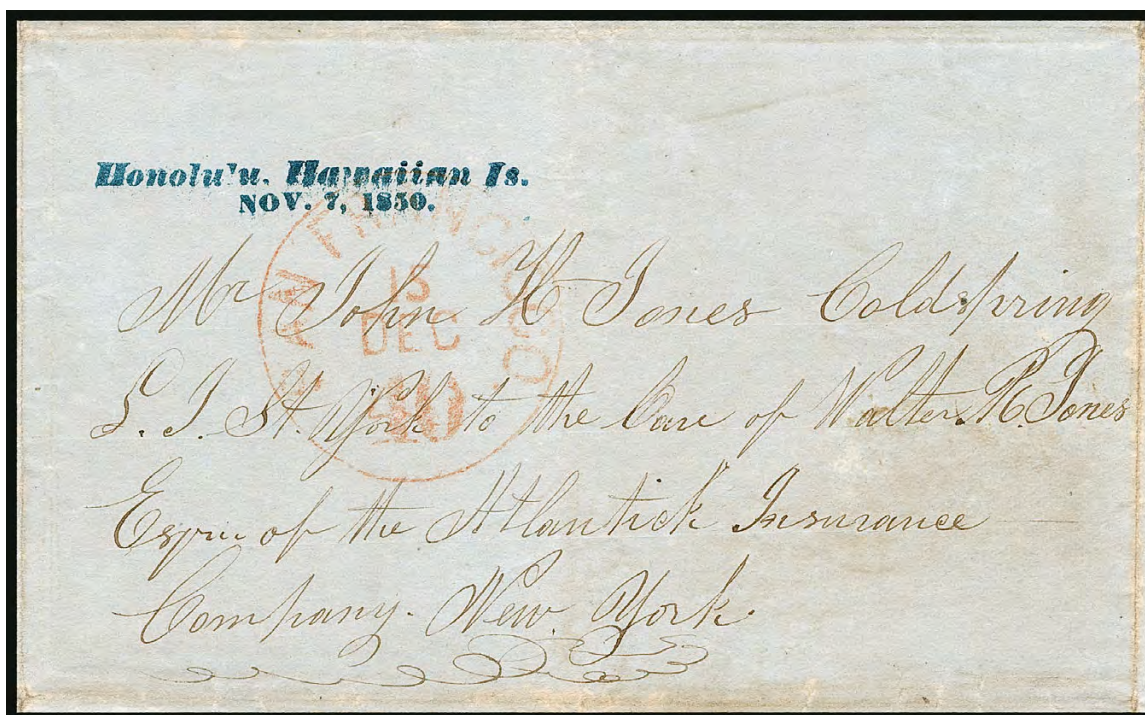 Honolu'u, Hawaiian Is.
NOV. 7, 1850.
SAN FRANCISCO
15
DEC
40
Mr John H Jones Coldspring
L. I. St. York to the Care of Walter R. Jones
Esqr. of the Atlantick Insurance
Company. New York.